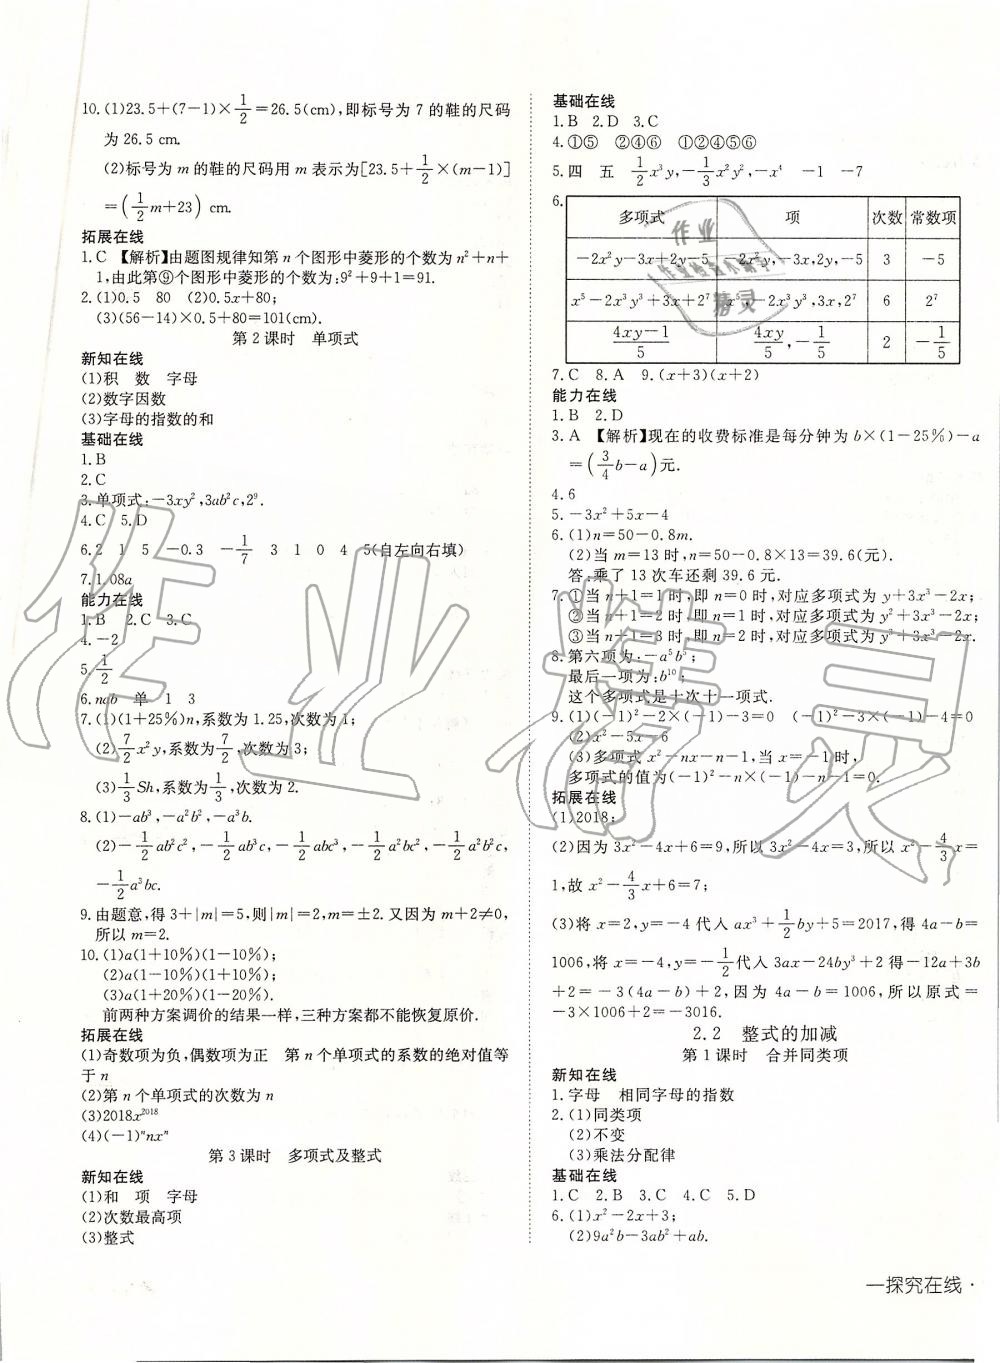 10.(1)23.5+(7−1)×1/2=26.5(cm),即标号为 7 的鞋的尺码
为 26.5 cm.
(2)标号为 m 的鞋的尺码用 m 表示为[23.5+1/2×(m−1)]
=(1/2m+23) cm.
拓展在线
1.C 【解析】由题图规律知第 n 个图形中菱形的个数为 n²+n+
1,由此第⑨个图形中菱形的个数为:9²+9+1=91.
2.(1)0.5 80 (2)0.5x+80;
(3)(56−14)×0.5+80=101(cm).
第 2 课时 单项式
新知在线
(1)积 数 字母
(2)数字因数
(3)字母的指数的和
基础在线
1.B
2.C
3.单项式:−3xy²,3ab²c,2⁹.
4.C 5.D
6.2 1 5 −0.3 −1/7 3 1 0 4 5(自左向右填)
7.1.08a
能力在线
1.B 2.C 3.C
4.−2
5.1/2
6.nab 单 1 3
7.(1)(1+25%)n,系数为 1.25,次数为 1;
(2)7/2x²y,系数为7/2,次数为 3;
(3)1/3Sh,系数为1/3,次数为 2.
8.(1)−ab³,−a²b²,−a³b.
(2)−1/2ab²c²,−1/2ab³c,−1/2abc³,−1/2a²bc²,−1/2a²b²c,
−1/2a³bc.
9.由题意,得 3+|m|=5,则|m|=2,m=±2.又因为 m+2≠0,
所以 m=2.
10.(1)a(1+10%)(1−10%);
(2)a(1−10%)(1+10%);
(3)a(1+20%)(1−20%).
前两种方案调价的结果一样,三种方案都不能恢复原价.
拓展在线
(1)奇数项为负,偶数项为正 第 n 个单项式的系数的绝对值等
于 n
(2)第 n 个单项式的次数为 n
(3)2018x²⁰¹⁸
(4)(−1)ⁿnxⁿ
第 3 课时 多项式及整式
新知在线
(1)和 项 字母
(2)次数最高项
(3)整式
基础在线
1.B 2.D 3.C
4.①⑤ ②④⑥ ①②④⑤⑥
5.四 五 1/2x³y,−1/3x²y²,−x⁴ −1 −7
6.
多项式 项 次数 常数项
−2x²y−3x+2y−5 −2x²y,−3x,2y,−5 3 −5
x⁵−2x³y³+3x+2⁷ x⁵,−2x³y³,3x,2⁷ 6 2⁷
4xy−1/5 4xy/5,−1/5 2 −1/5
7.C 8.A 9.(x+3)(x+2)
能力在线
1.B 2.D
3.A 【解析】现在的收费标准是每分钟为 b×(1−25%)−a
=(3/4b−a)元.
4.6
5.−3x²+5x−4
6.(1)n=50−0.8m.
(2)当 m=13 时,n=50−0.8×13=39.6(元).
答:乘了 13 次车还剩 39.6 元.
7.①当 n+1=1 时,即 n=0 时,对应多项式为 y+3x³−2x;
②当 n+1=2 时,即 n=1 时,对应多项式为 y²+3x³−2x;
③当 n+1=3 时,即 n=2 时,对应多项式为 y³+3x³−2x.
8.第六项为:−a⁵b⁵;
最后一项为:b¹⁰;
这个多项式是十次十一项式.
9.(1)(−1)²−2×(−1)−3=0 (−1)²−3×(−1)−4=0
(2)x²−5x−6
(3)多项式 x²−nx−n−1,当 x=−1 时,
多项式的值为(−1)²−n×(−1)−n−1=0.
拓展在线
(1)2018;
(2)因为 3x²−4x+6=9,所以 3x²−4x=3,所以 x²−4/3x=
1,故 x²−4/3x+6=7;
(3)将 x=2,y=−4 代入 ax³+1/2by+5=2017,得 4a−b=
1006,将 x=−4,y=−1/2代入 3ax−24by³+2 得−12a+3b
+2=−3(4a−b)+2,因为 4a−b=1006,所以原式=
−3×1006+2=−3016.
2.2 整式的加减
第 1 课时 合并同类项
新知在线
1.字母 相同字母的指数
2.(1)同类项
(2)不变
(3)乘法分配律
基础在线
1.C 2.B 3.C 4.C 5.D
6.(1)x²−2x+3;
(2)9a²b−3ab²+ab.
一探究在线·
作业精灵